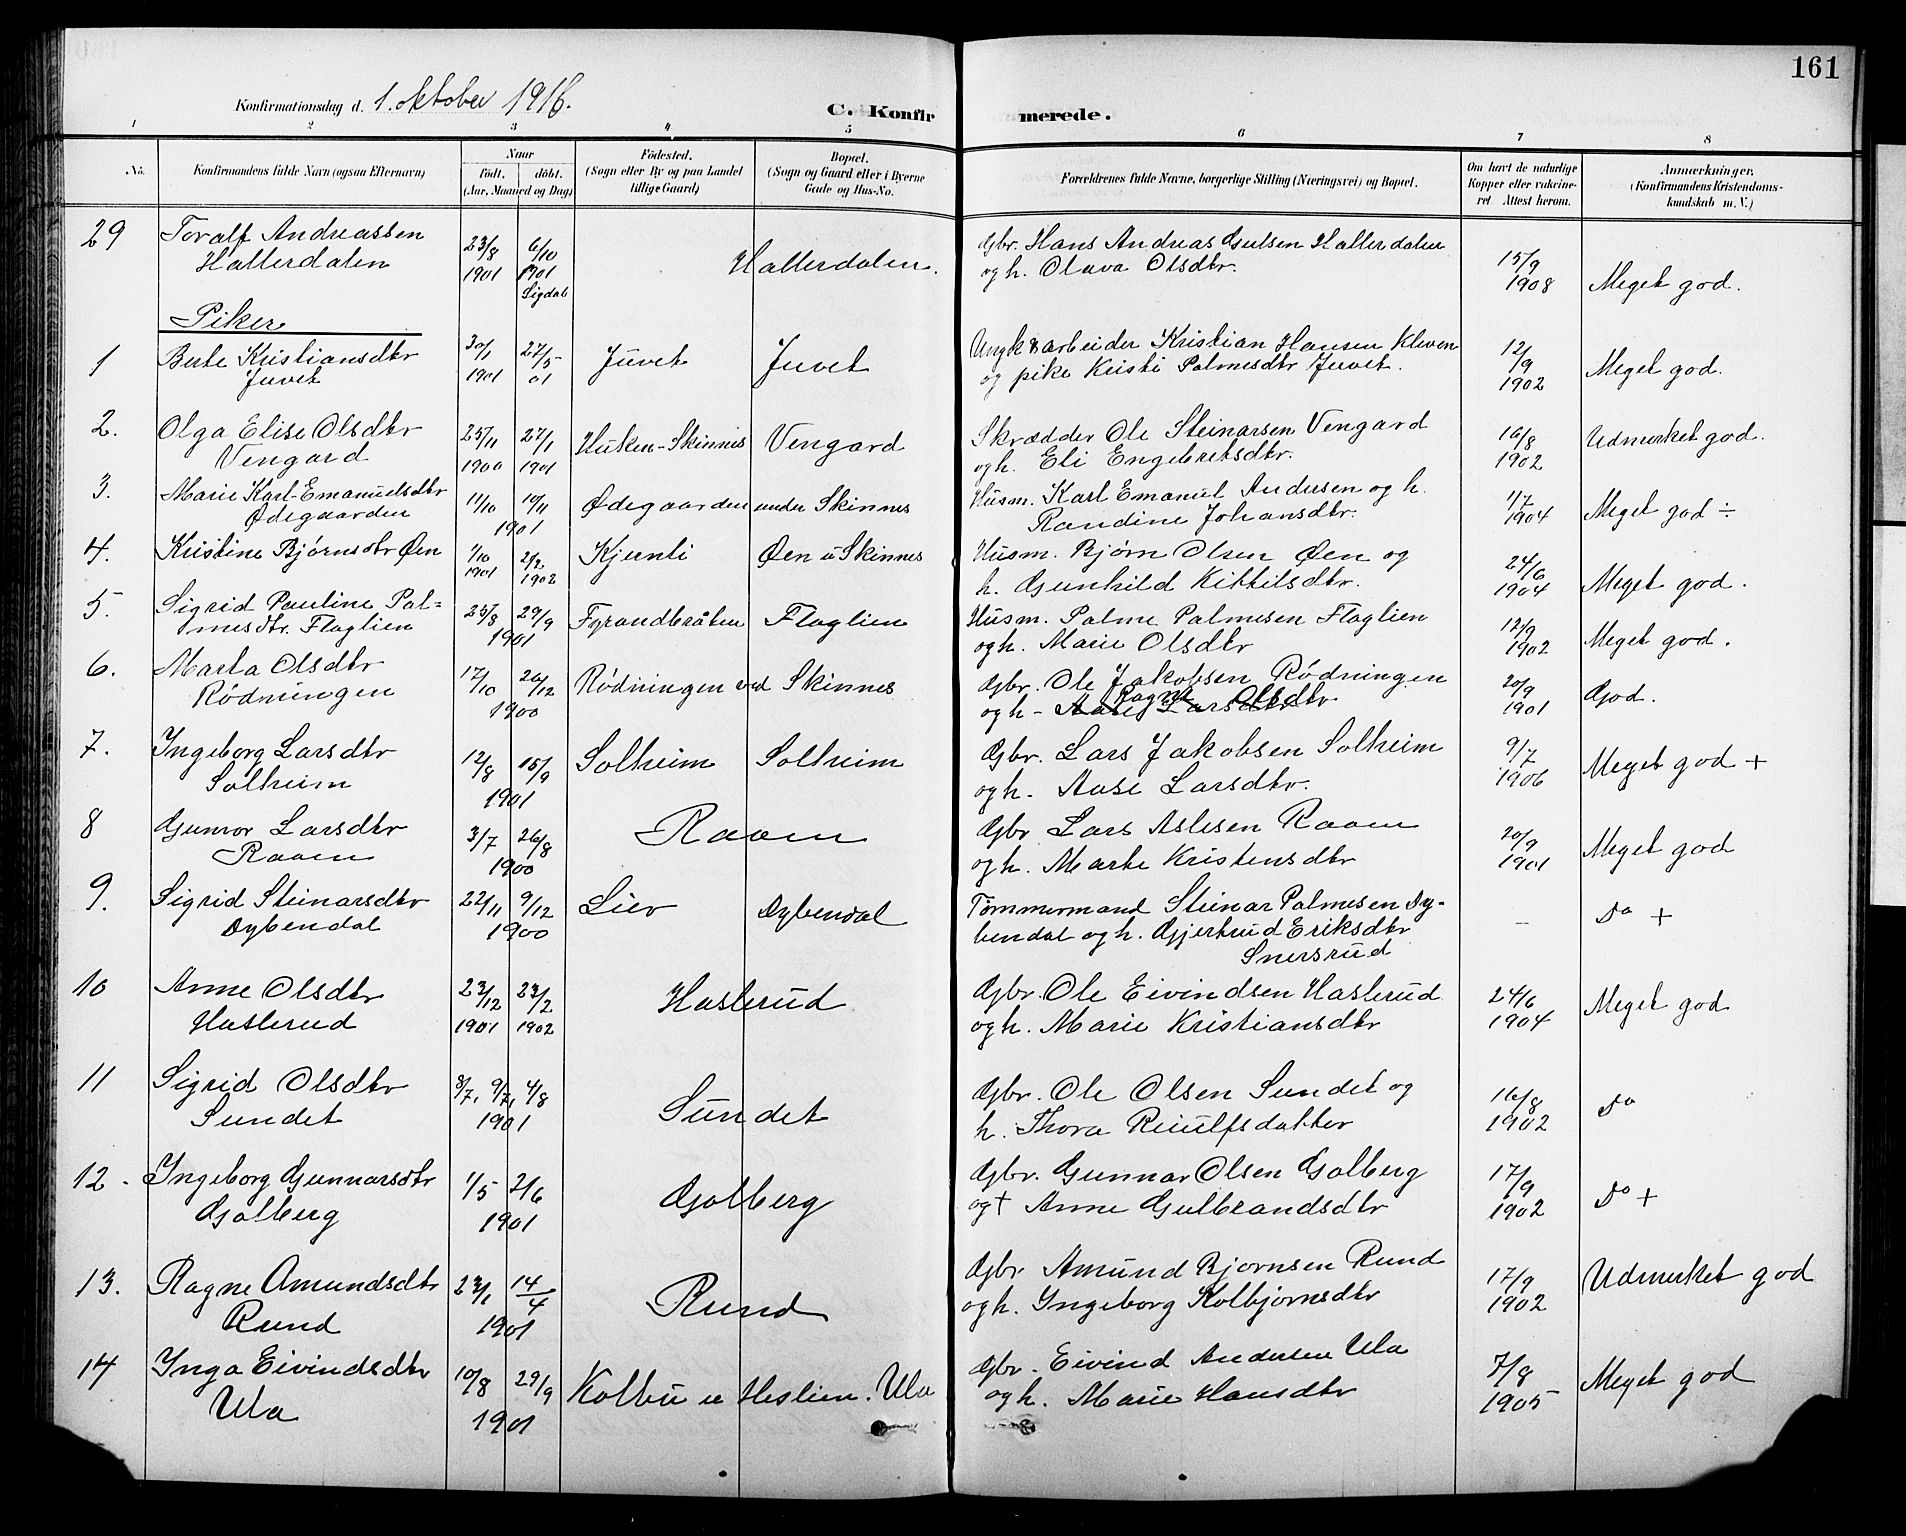 161
Konfirmationsdag d. 1. oktober 1916.
C. Konfir merede.
1 2 3 4 5 6 7 8
No.
Konfirmandens fulde Navn (ogsaa Efternavn)
Naar
födt. döbt.
(Aar, Maaned og Dag)
Födested.
(Sogn eller By og paa Landet
tillige Gaard)
Bopæl.
(Sogn og Gaard eller i Byerne
Gade og Hus-No.
Forældrenes fulde Navne, borgerlige Stilling (Næringsvei) og Bopæl.
Om havt de naturlige
Kopper eller vakcine-
ret. Attest herom.
Anmærkninger.
(Konfirmandens Kristendoms-
kundskab m. V.)
29 Toralf Andreassen 23/8 6/10 Hallerdalen. Gbr. Hans Andreas Hallerdalen 15/9
Hallerdalen 1901 1901 og h. Olava Olsdtr. 1908 Meget god.
Sigdal
Piker
1 Berte Kristiansdtr 30/1 27/5 Juvet Juvet Ungk & arbeider Kristian Hansen Kleven 12/9
Juvet 1901 01 og pike Kristi Palmesdtr Juvet. 1902 Meget god.
2. Olga Elise Olsdtr 25/11 27/1 Husken-Skinnes Vengard Skrædder Ole Steinarsen Vengard 16/8 Udmerket god.
Vengard 1900 1901 og h. Eli Engebretsdtr. 1902
3. Marie Karl-Emanuelsdtr 11/10 10/11 Ødegaarden under Skinnes Husm. Karl Emanuel Andersen og h. 1/7 Meget god ÷
Ødegaarden 1901 Randine Johansdtr. 1904
4. Kristine Bjørnsdtr Øen 1/10 2/2 Kjernli Øen u Skinnes Husm. Bjørn Olsen Øen og 24/6
1901 1902 h. Gunhild Kittilsdtr. 1904 Meget god.
5. Sigrid Pauline Pal= 25/8 29/9 Fyrandbråten Flaglien Husm. Palme Palmesen Flaglien 12/9
mesdtr. Flaglien 1901 og h. Marie Olsdtr 1902 Meget god.
6. Marta Olsdtr 17/10 26/12 Rødningen ved Skinnes Gbr. Ole Jakobsen Rødningen 20/9 God.
Rødningen 1900 og h - Aase Larsdtr Ragne Olsdtr 1901
7. Ingeborg Larsdtr 12/8 15/9 Solheim Solheim Gbr. Lars Jakobsen Solheim 9/7 Meget god +
Solheim 1901 og h - Aase Larsdtr. 1906
8 Gunvor Larsdtr 3/7 26/8 Raaen Gbr Lars Aslesen Raaen 20/9 Meget god
Raaen 1900 og h. Marte Kristensdtr 1901
9. Sigrid Steinarsdtr 22/11 9/12 Lier Dybendal Tømmermand Steinar Palmesen Dy- – Do +
Dybendal 1900 bendal og h. Gjertrud Eriksdtr
Snersrud
10 Anne Olsdtr 23/12 23/2 Haslerud Gbr. Ole Eivindsen Haslerud 24/6 Meget god
Haslerud 1901 1902 og h. Marie Kristiansdtr 1904
11 Sigrid Olsdtr 8/7, 9/7, 4/8 Sundet Gbr. Ole Olsen Sundet og 16/8 Do
Sundet 1901 h. Thora Reiulfsdatter 1902
12. Ingeborg Gunnarsdtr 1/5 2/6 Golberg Gbr. Gunnar Olsen Golberg 17/9 Do +
Golberg 1901 og † Anne Gulbrandsdtr 1902
13. Ragne Amundsdtr 23/1 14/4 Rund Gbr Amund Bjørnsen Rund 17/9 Udmerket god
Rund 1901 og h. Ingeborg Kolbjørnsdtr 1902
14 Inga Eivindsdtr 10/8 29/9 Kolbu u Heslien. Ula Gbr. Eivind Andersen Ula 7/8 Meget god
Ula 1901 og h. Marie Hansdtr 1905